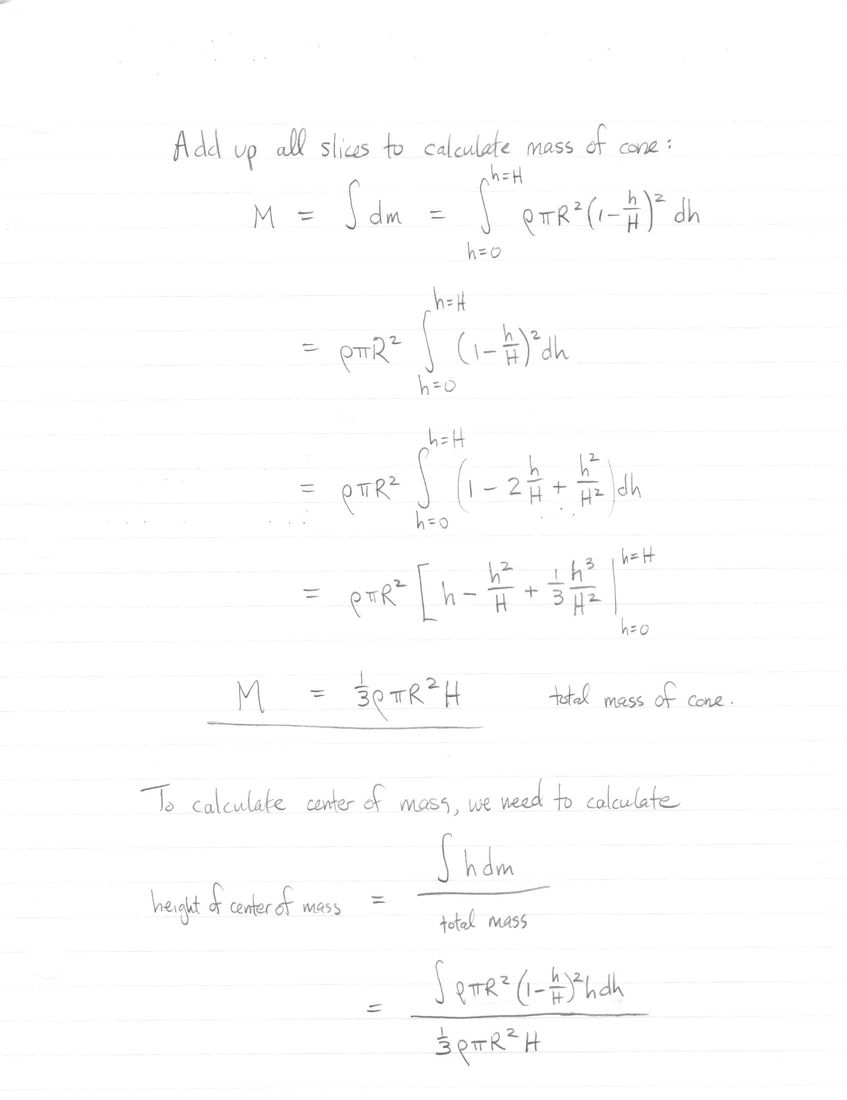 Add up all slices to calculate mass of cone:
M = ∫ dm = ∫_{h=0}^{h=H} ρπR²(1-h/H)² dh
= ρπR² ∫_{h=0}^{h=H} (1-h/H)² dh
= ρπR² ∫_{h=0}^{h=H} (1 - 2 h/H + h²/H²) dh
= ρπR² [h - h²/H + 1/3 h³/H² |_{h=0}^{h=H}
M = 1/3 ρπR²H total mass of cone.
To calculate center of mass, we need to calculate
height of center of mass = ∫ h dm / total mass
= ∫ ρπR² (1-h/H)² h dh / 1/3 ρπR² H